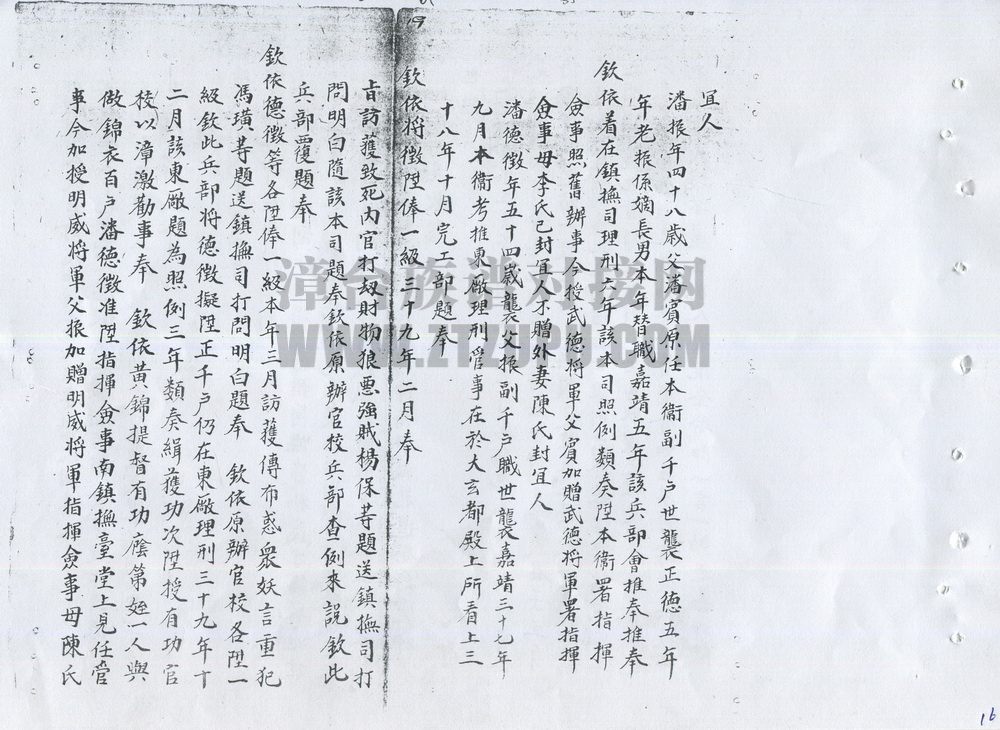 19
宜人
潘振年四十八歲父潘賓原任本衞副千戶世襲正德五年
年老振係嫡長男本年替職嘉靖五年該兵部會推奉推奉
欽依着在鎮撫司理刑六年該本司照例類奏陞本衞署指揮
僉事照舊辦事今授武德將軍父賓加贈武德將軍署指揮
僉事母李氏已封宜人不贈外妻陳氏封宜人
潘德徵年五十四歲襲父振副千戶職世襲嘉靖三十七年
九月本衞考推東廠理刑管事在於大玄都殿上所看上三
十八年十月完工部題奉
欽依将徵陞俸一級三十九年二月奉
旨訪獲致死內官打刼財物狼惡強賊楊保等題送鎮撫司打
問明白隨該本司題奉欽依原辦官校兵部查例來說欽此
兵部覆題奉
欽依德徵等各陞俸一級本年三月訪獲傳布惑衆妖言重犯
馮璜等題送鎮撫司打問明白題奉 欽依原辦官校各陞一
級欽此兵部将德徵擬陞正千戶仍在東廠理刑三十九年十
二月該東廠題為照例三年類奏緝獲功次陞授有功官
校以漳激勸事奉 欽依黃錦提督有功廕第姪一人與
做錦衣百戶潘德徵准陞指揮僉事南鎮撫臺堂上見任管
事今加授明威将軍父振加贈明威将軍指揮僉事母陳氏
漳台族譜对接网
WWW.ZTZUPU.COM
16